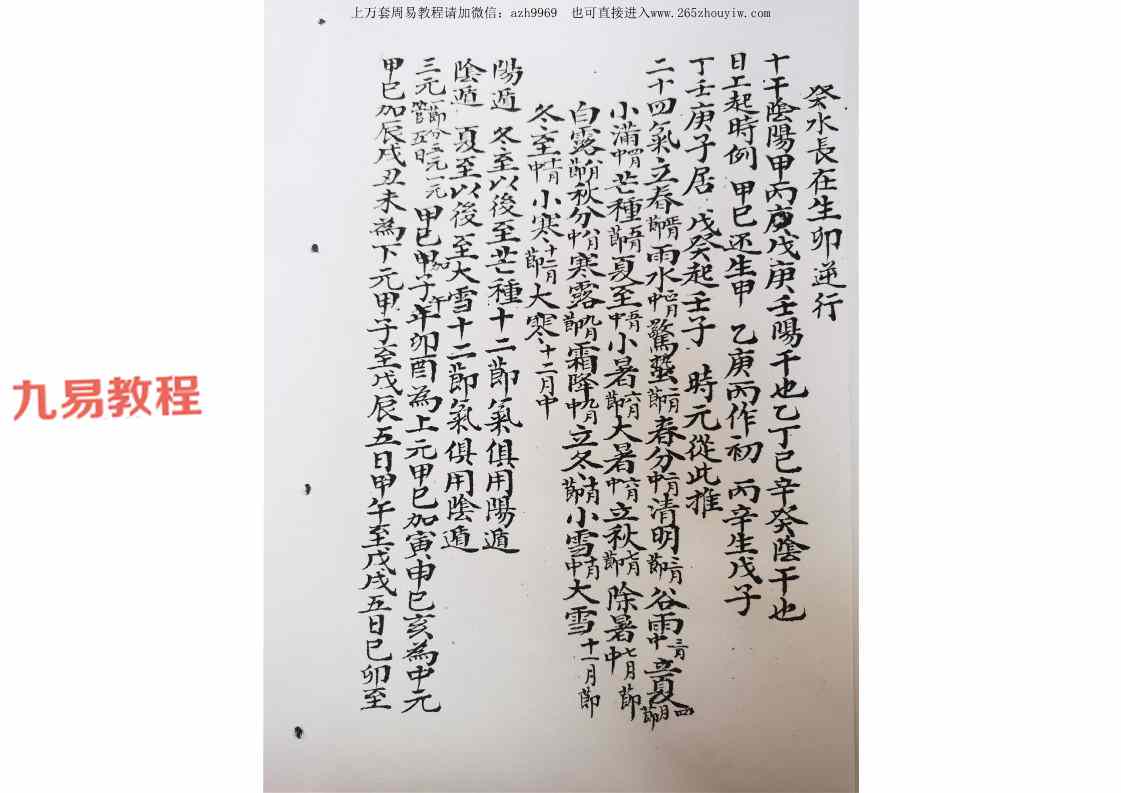 上万套周易教程请加微信：azh9969 也可直接进入www.265zhouyiw.com
九易教程
癸水長在生卯逆行
十干陰陽甲丙庚戊庚壬陽干也乙丁己辛癸陰干也
日上起時例 甲己还生甲 乙庚丙作初 丙辛生戊子
丁壬庚子居 戊癸起壬子 時元從此推
二十四氣立春正月節雨水正月中驚蟄二月節春分二月中清明三月節谷雨三月中立夏四月節
小滿四月中芒種五月節夏至五月中小暑六月節大暑六月中立秋七月節除暑七月中
白露八月節秋分八月中寒露九月節霜降九月中立冬十月節小雪十月中大雪十一月節
冬至十一月中小寒十二月節大寒十二月中
陽遁 冬至以後至芒種十二節氣俱用陽遁
陰遁 夏至以後至大雪十二節氣俱用陰遁
三元一節分三元一元管五日 甲己加甲子午卯酉為上元甲己加寅申巳亥為中元
甲己加辰戌丑未為下元甲子至戊辰五日甲午至戊戌五日己卯至